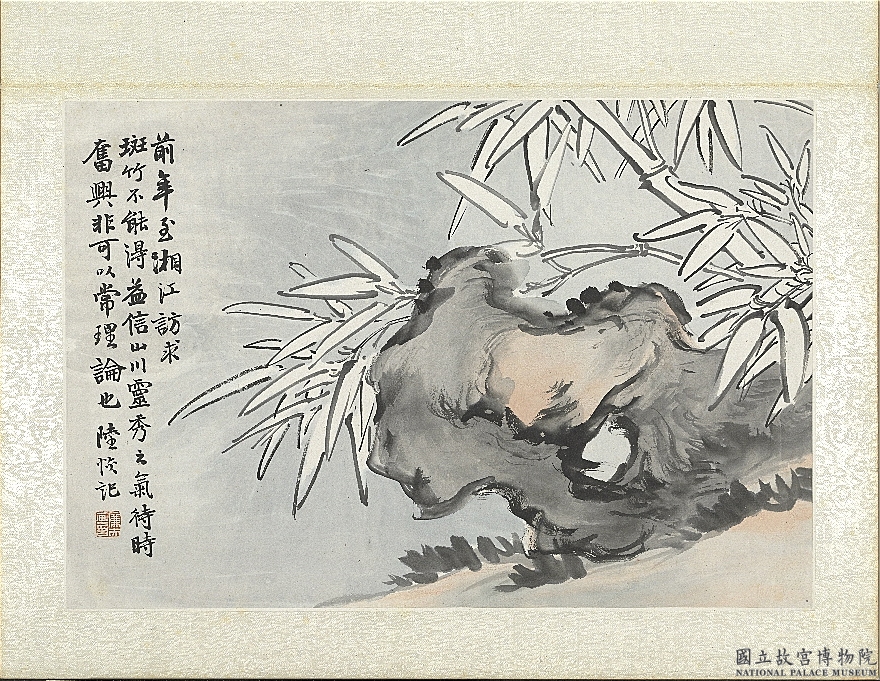 前年至湘江訪求
斑竹不能得益信山川靈秀之氣待時
奮興非可以常理論也 陸恢記
國立故宮博物院
NATIONAL PALACE MUSEUM